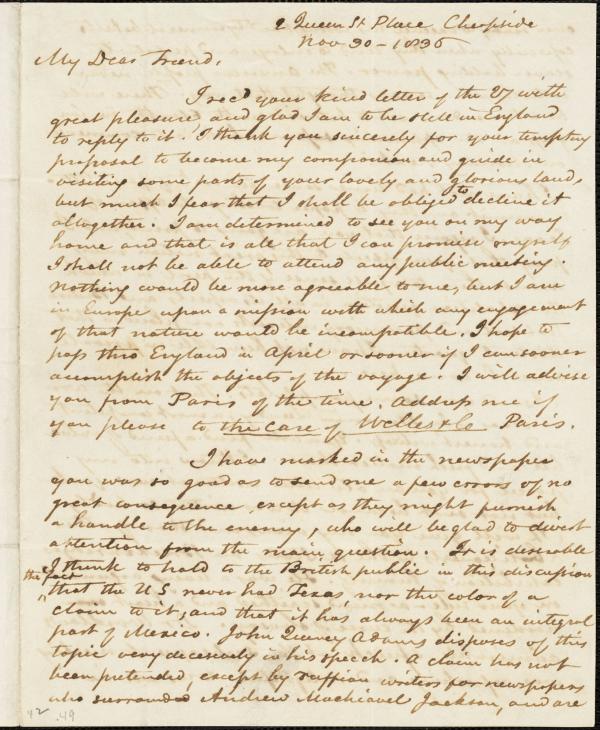 2 Queen St Place Cheapside
Nov 30 - 1836
My Dear Friend,
I recd your kind letter of the 27 with
great pleasure and glad I am to be still in England
to reply to it. I thank you sincerely for your tempting
proposal to become my companion and guide in
visiting some parts of your lovely and glorious land,
but much I fear that I shall be obliged to decline it
altogether. I am determined to see you on my way
home and that is all that I can promise myself
I shall not be able to attend any public meeting.
Nothing would be more agreeable to me, but I am
in Europe upon a mission with which any engagement
of that nature would be incompatible. I hope to
pass thro England in April or sooner if I can sooner
accomplish the objects of the voyage. I will advise
you from Paris of the time. Address me if
you please to the care of Welles & Co Paris.
I have marked in the newspaper
you was so good as to send me a few errors of no
great consequence except as they might furnish
a handle to the enemy, who will be glad to divert
attention from the main question. It is desirable
I think to hold to the British public in this discussion
the fact
that the U S never had Texas nor the color of a
claim to it, and that it has always been an integral
part of Mexico. John Quincy Adams disposes of this
topic very decisively in his speech. A claim has not
been pretended, except by ruffian writers for newspapers
who surround Andrew Machiavel Jackson, and are
42 .49